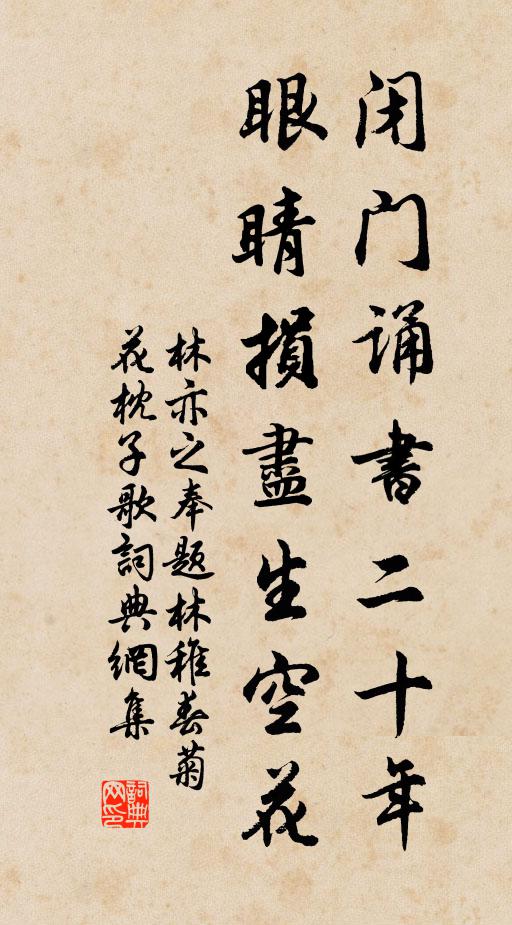 闭门诵書二十年
眼睛損盡生空花
林亦之奉题林稚春菊
花枕子歌詞典網集
詞典网印